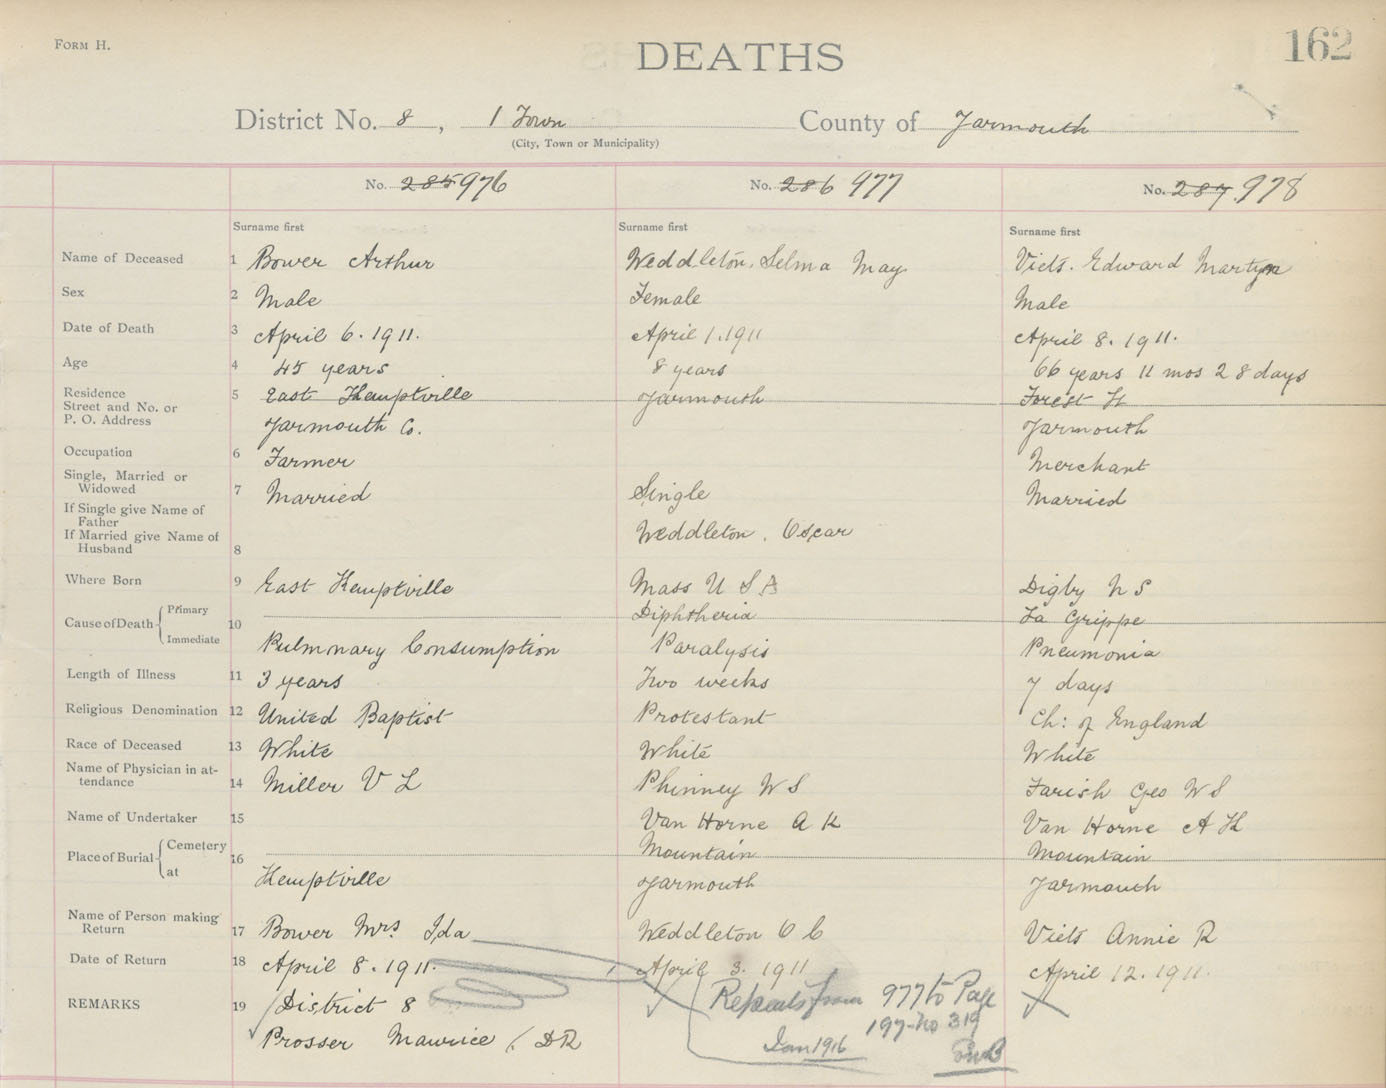 FORM H.
DEATHS
162
District No. 8, 1 Town County of Yarmouth
(City, Town or Municipality)
No. 285 976 No. 286 977 No. 287 978
Surname first Surname first Surname first
Name of Deceased 1 Bower Arthur Weddleton, Selma May Viets. Edward Martyn
Sex 2 Male Female Male
Date of Death 3 April 6. 1911. April 1. 1911 April 8. 1911.
Age 4 45 years 8 years 66 years 11 mos 28 days
Residence 5 East Kemptville Yarmouth Forest St
Street and No. or
P. O. Address Yarmouth Co. Yarmouth
Occupation 6 Farmer Merchant
Single, Married or
Widowed 7 Married Single Married
If Single give Name of
Father Weddleton, Oscar
If Married give Name of
Husband 8
Where Born 9 East Kemptville Mass U S A Digby N S
Cause of Death Primary 10 Diphtheria La Grippe
Immediate Pulmonary Consumption Paralysis Pneumonia
Length of Illness 11 3 years Two weeks 7 days
Religious Denomination 12 United Baptist Protestant Ch: of England
Race of Deceased 13 White White White
Name of Physician in at-
tendance 14 Miller V L Phinney W S Farish Geo W S
Name of Undertaker 15 Van Horne A K Van Horne A K
Place of Burial Cemetery 16 Mountain Mountain
at Kemptville Yarmouth Yarmouth
Name of Person making
Return 17 Bower Mrs Ida Weddleton O C Viets Annie R
Date of Return 18 April 8. 1911. April 3. 1911 April 12. 1911.
REMARKS 19 District 8 Repeats from 977 to Page
197-no 319
Prosser Maurice / DR Jan 1916